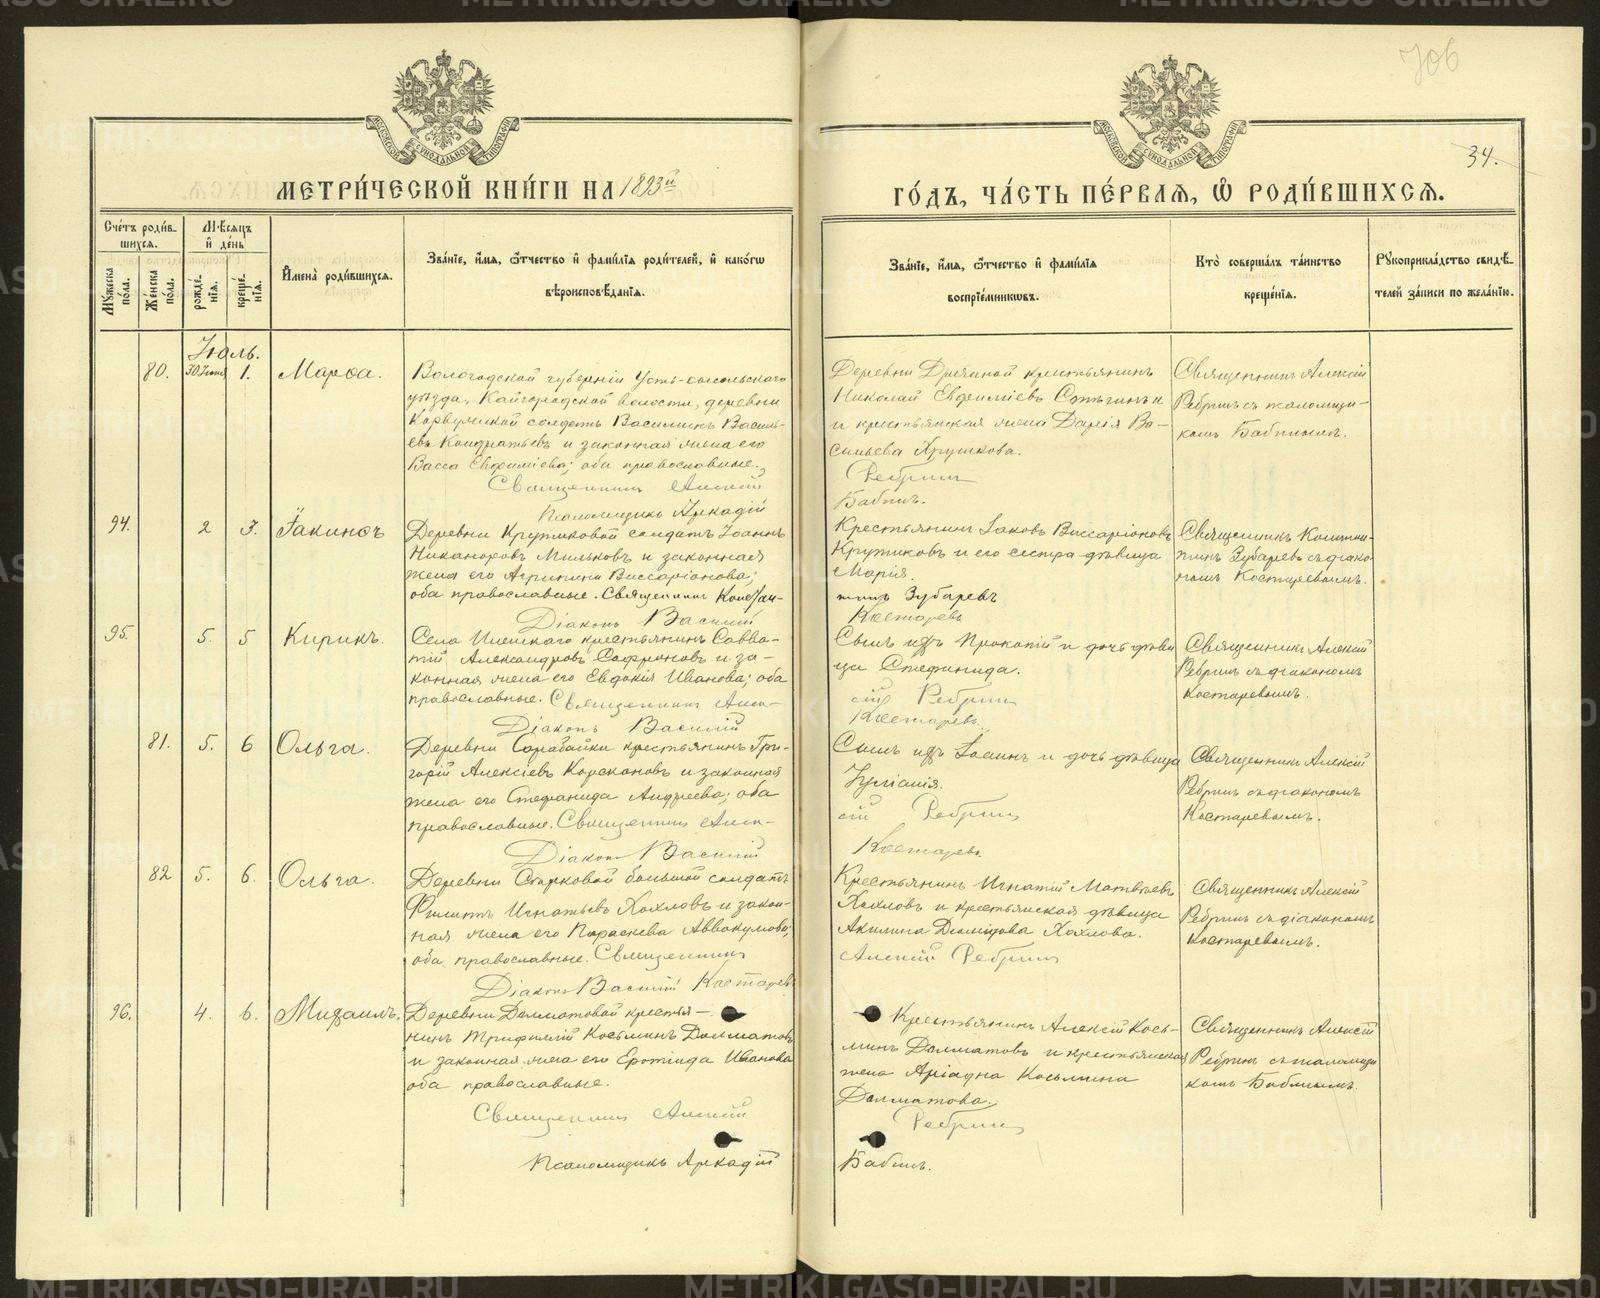 706
34.
МОСКОВСКОЙ СѴНОДАЛЬНОЙ ТИПОГРАФІИ
МОСКОВСКОЙ СѴНОДАЛЬНОЙ ТИПОГРАФІИ
МЕТРИ́ЧЕСКОЙ КНИ́ГИ НА 1893й
ГО́ДЪ, ЧА́СТЬ ПЕ́РВАѦ, Ѽ РОДИ́ВШИХСѦ.
Сче́тъ роди́в-
шихсѧ.
Мѣ́сѧцъ
и҆ де́нь
Мꙋ́жеска
по́ла.
Же́нска
по́ла.
рожде́-
нїѧ.
креще́-
нїѧ.
И҆мена̀ роди́вшихсѧ.
Зва́нїе, и҆́мѧ, ѻ҆́тчество и҆ фами́лїѧ роди́телей, и҆ како́гѡ
вѣроисповѣ́данїѧ.
Зва́нїе, и҆́мѧ, ѻ҆́тчество и҆ фами́лїѧ
воспрїе́мникѡвъ.
Кто̀ соверша́лъ та́инство
креще́нїѧ.
Рꙋкоприкла́дство свидѣ́-
телей за́писи по жела́нїю.
Іюль.
80. 30 Іюня 1. Марѳа.
Вологодской губерніи Усть-сысольского
уѣзда, Кайгородской волости, деревни
солдатъ Василискъ Василь-
евъ Кондратьевъ и законная жена его
Васса Евѳиміева; оба православные.
Священникъ Алексій
Псаломщикъ Аркадій
Деревни крестьянинъ
Николай Евѳиміевъ
и крестьянская жена Дарія Ва-
сильева Хрушкова.
Ребринъ
Бабинъ.
Священникъ Алексій
Ребринъ съ псаломщи-
комъ Бабинымъ.
94. 2 3. Іакинѳъ
Деревни Крутиковой солдатъ Іоаннъ
Никаноровъ Мильковъ и законная
жена его Агрипина Виссаріонова;
оба православные. Священникъ Констан-
Діаконъ Василій
Крестьянинъ Іаковъ Виссаріоновъ
Крутиковъ и его сестра дѣвица
Марія.
тинъ Зубаревъ
Костаревъ
Священникъ Констан-
тинъ Зубаревъ съ діако-
номъ Костаревымъ.
95. 5. 5 Кирикъ.
Села крестьянинъ Савва-
тій Александровъ Софроновъ и за-
конная жена его Евдокія Иванова; оба
православные. Священникъ Алек-
Діаконъ Василій
Сынъ ихъ Прокопій и дочь дѣви-
ца Стефанида.
сій Ребринъ
Костаревъ.
Священникъ Алексій
Ребринъ съ діакономъ
Костаревымъ.
81. 5. 6 Ольга.
Деревни Сарабайки крестьянинъ Гри-
горій Алексіевъ Корсканов и законная
жена его Стефанида Андреева; оба
православные. Священникъ Алек-
Діаконъ Василій
Сынъ ихъ Іоаннъ и дочь дѣвица
Іуліанія.
сій Ребринъ
Костаревъ
Священникъ Алексій
Ребринъ съ діакономъ
Костаревымъ.
82 5. 6. Ольга.
Деревни Старковой большой солдатъ
Филиппъ Игнатьевъ Хохловъ и закон-
ная жена его Параскева Аввакумова;
оба православные. Священникъ
Діаконъ Василій Костаревъ
Крестьянинъ Игнатій Матвѣевъ
Хохловъ и крестьянская дѣвица
Акилина Хохлова.
Алексій Ребринъ
Священникъ Алексій
Ребринъ съ діакономъ
Костаревымъ.
96. 4. 6. Михаилъ.
Деревни Долматовой крестья-
нинъ Трифилій Косьминъ Долматовъ
и законная жена его Еротіида Иванова
оба православные.
Священникъ Алексій
Псаломщикъ Аркадій
Крестьянинъ Алексій Кось-
минъ Долматовъ и крестьянская
жена Аріадна Косьмина
Долматова.
Ребринъ
Бабинъ.
Священникъ Алексій
Ребринъ съ псаломщи-
комъ Бабинымъ.
METRIKI.GASO-URAL.RU